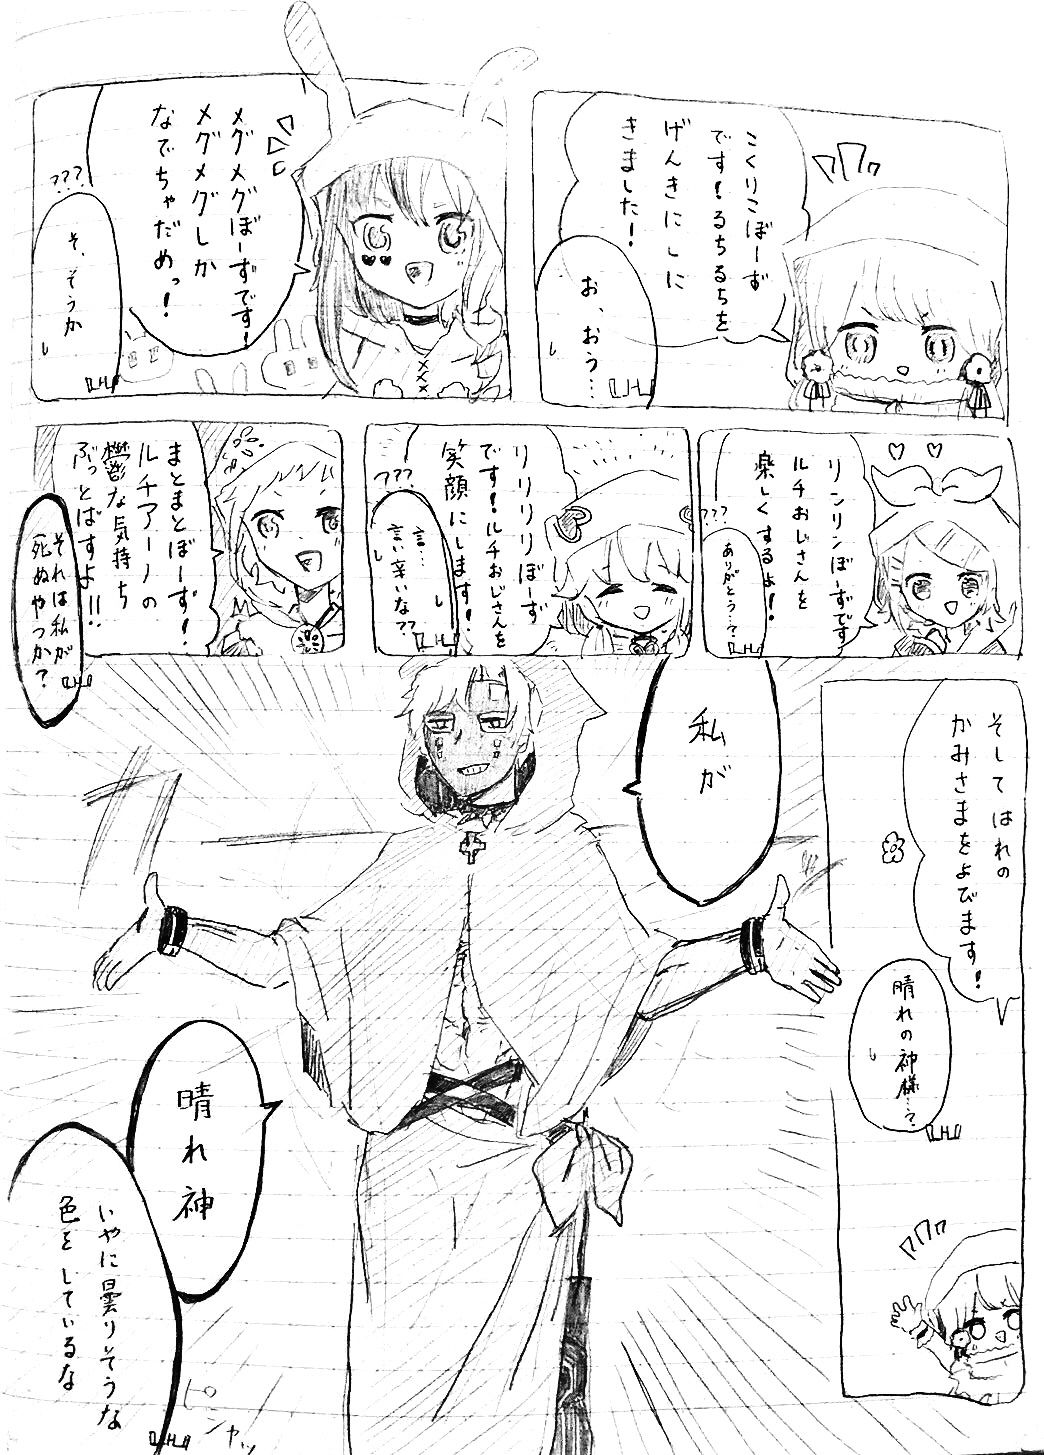 こくりこぼーず
です！るちるちを
げんきにしに
きました！
お、おう…
メグメグぼーずです！
メグメグしか
なでちゃだめっ！
???
そ、そうか
リンリンぼーずです
ルチおじさんを
楽しくするよ！
???
ありがとう…？
リリリリぼーず
です！ルチおじさんを
笑顔にします！
???
言…
言い辛いな??
まとまとぼーず！
ルチアーノの
鬱な気持ち
ぶっとばすよ!!
それは私が
死ぬやつか？
そして はれの
かみさまをよびます！
晴れの神様…？
私が
晴れ神
いやに曇りそうな
色をしているな
ピシャッ